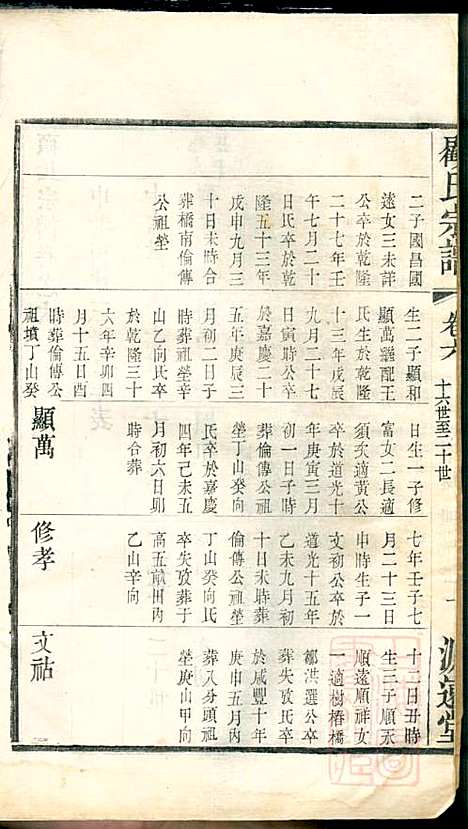 顧氏宗譜
卷六
十六世至二十世
一
源遠堂
二子國昌國
遠女三未詳
公卒於乾隆
二十七年壬
午七月二十
日氏卒於乾
隆五十三年
戊申九月三
十日未時合
葬橋南倫傳
公祖塋
生二子顯和
顯萬繼配王
氏生於乾隆
十三年戊辰
九月二十七
日寅時公卒
於嘉慶二十
五年庚辰三
月初二日子
時葬祖塋辛
山乙向氏卒
於乾隆三十
六年辛卯四
月十五日酉
時葬倫傳公
祖墳丁山癸
顯萬
日生一子修
富女二長適
須次適黃公
卒於道光十
年庚寅三月
初一日子時
葬倫傳公祖
塋丁山癸向
氏卒於嘉慶
四年己未五
月初六日卯
時合葬
修孝
七年壬子七
月二十三日
申時生子一
文初公卒於
道光十五年
乙未九月初
十日未時葬
倫傳公祖塋
丁山癸向氏
卒失攷葬于
高五畝田內
乙山辛向
文祜
十二日丑時
生三子順永
順遠順祥女
一適樹樁橋
鄒洪選公卒
葬失攷氏卒
於咸豐十年
庚申五月內
葬八分頭祖
塋庚山甲向